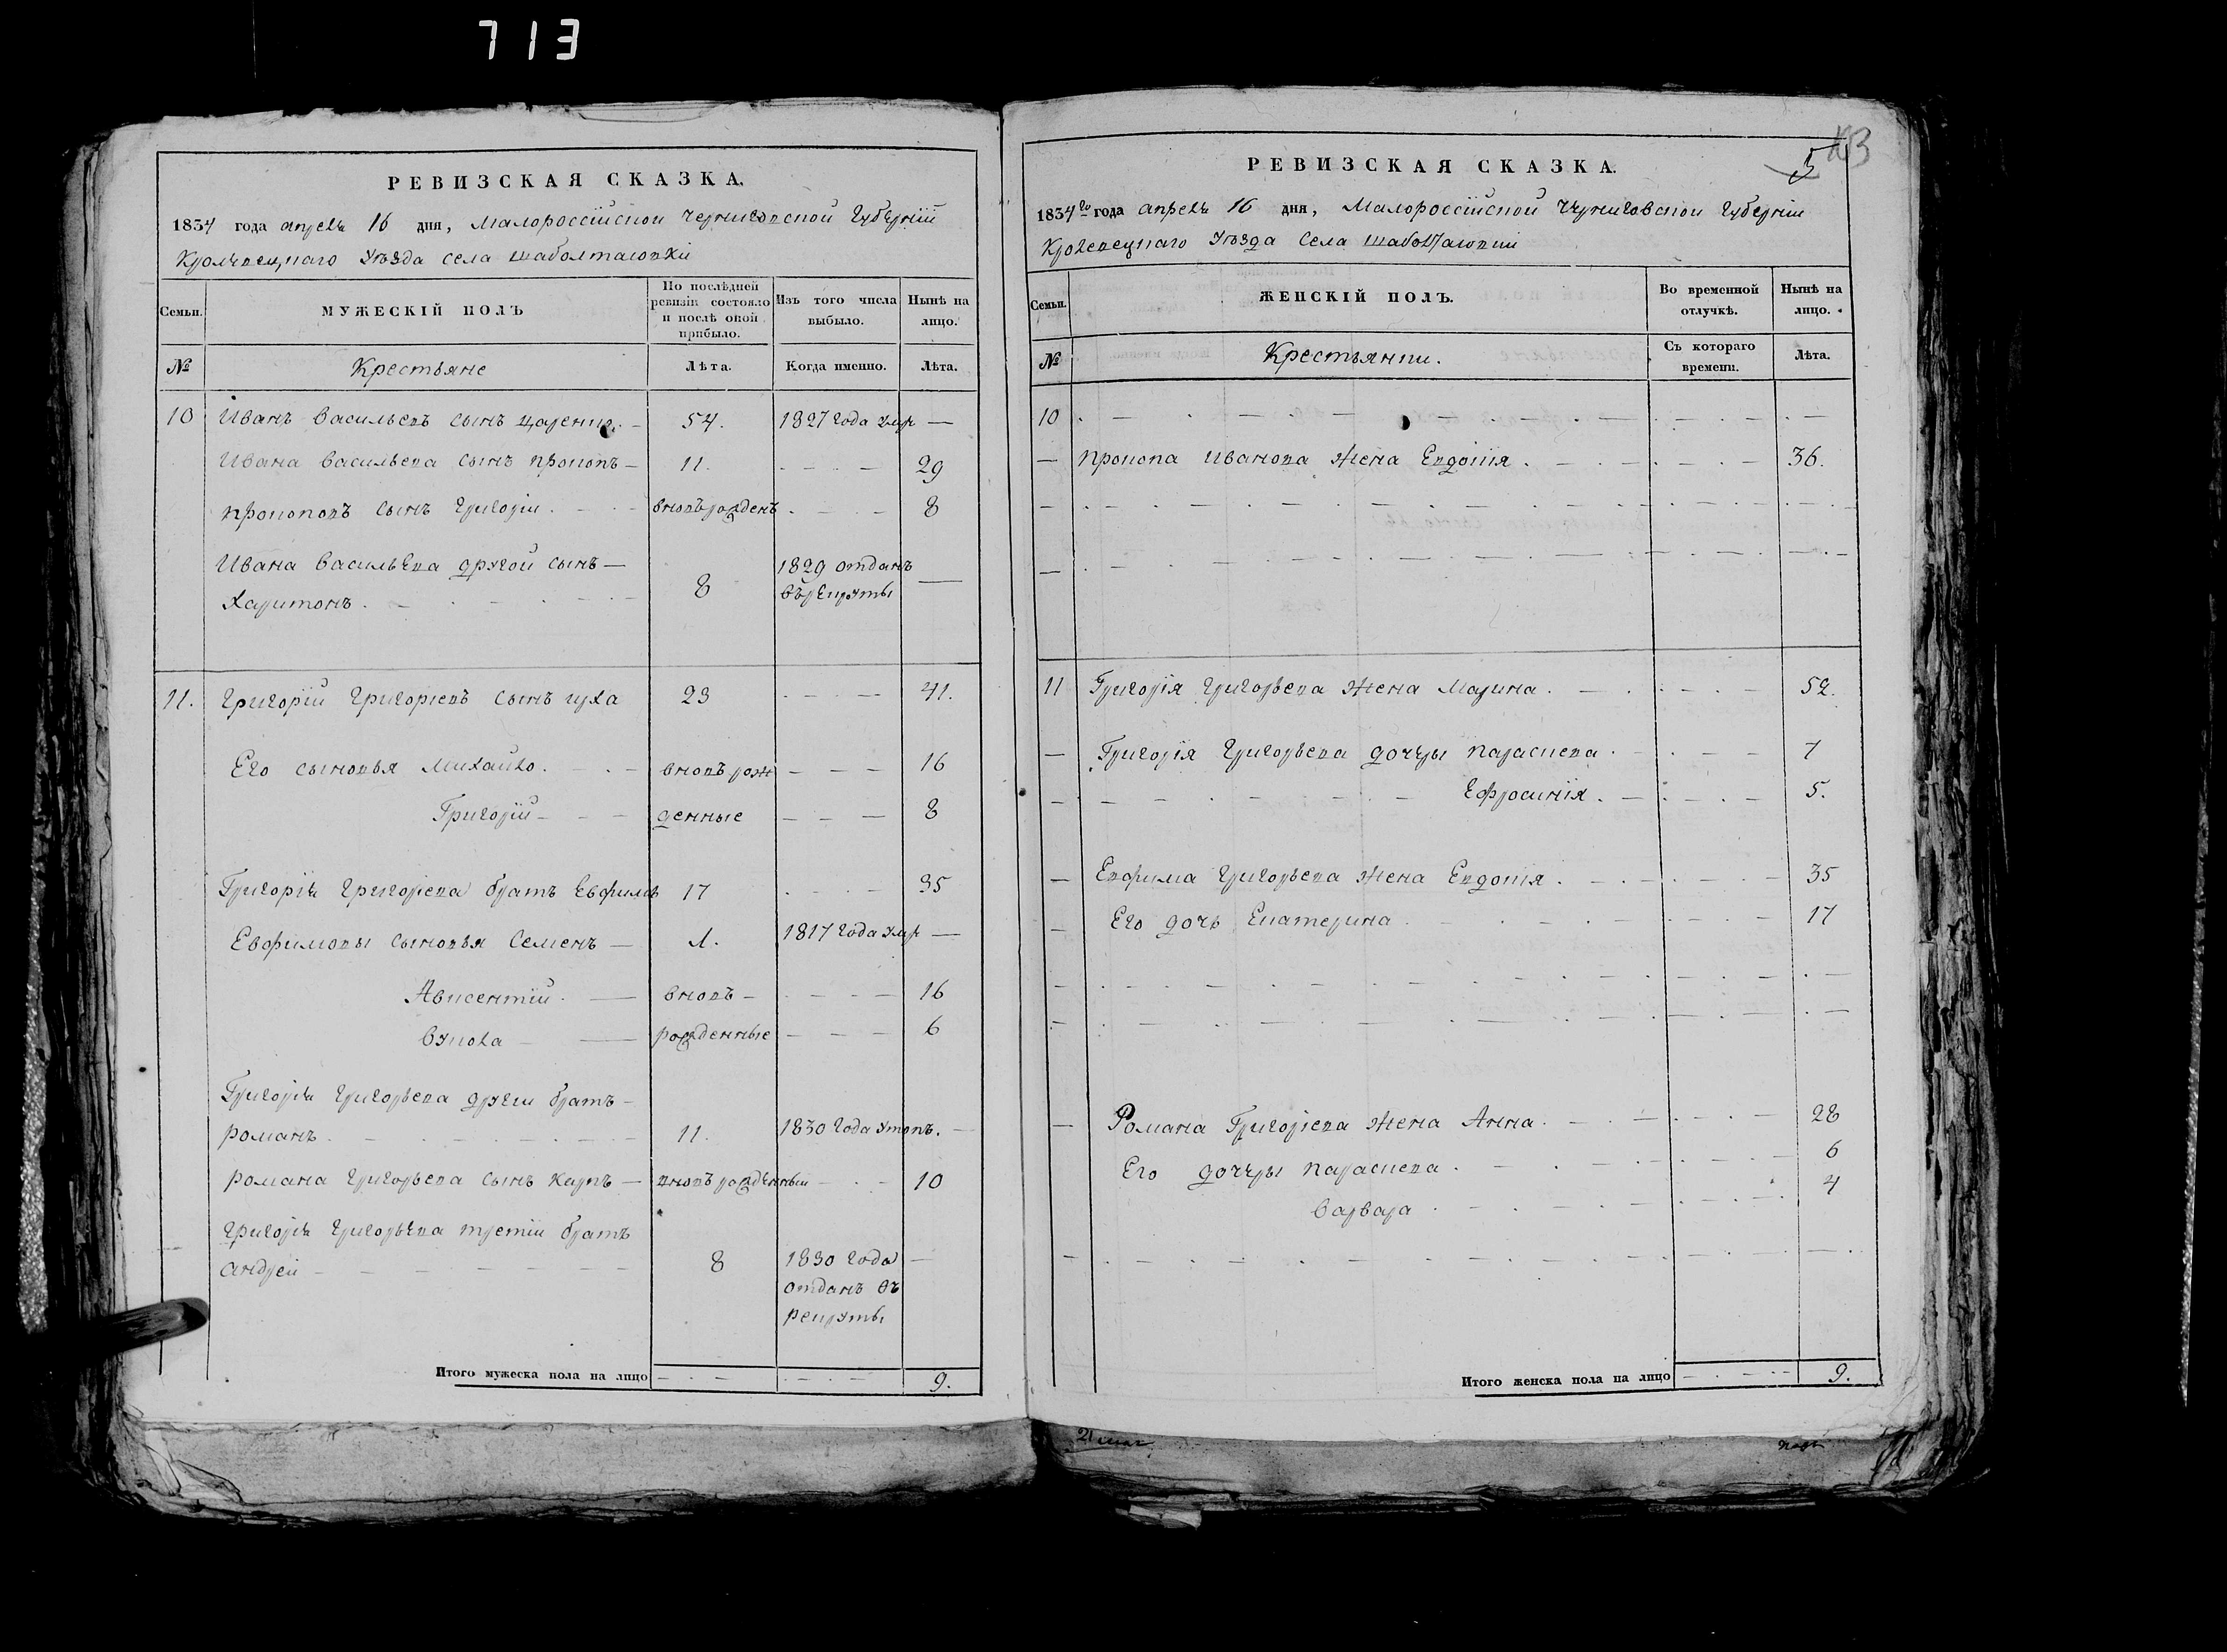 713
РЕВИЗСКАЯ СКАЗКА.
1834 года апреля 16 дня, Малороссійской Черниговской Губерніи
Кролевецкаго уѣзда села шаболтаювки
Семьи.
МУЖЕСКІЙ ПОЛЪ
По послѣдней ревизіи состояло и послѣ оной прибыло.
Изъ того числа выбыло.
Нынѣ на лицо.
№
Крестьяне
Лѣта.
Когда именно.
Лѣта.
10 Иванъ Васильевъ сынъ 54. 1827 года умре —
Ивана Васильева сынъ прокопъ — 11. — 29
прокоповъ сынъ Григорій. вновьрожденъ — 8
Ивана Васильева другой сынъ —
Харитонъ. 8 1829 отданъ въ рекруты —
11. Григорій Григоріевъ сынъ гуха 23 — 41.
Его сыновья Михайло. вновь рож — 16
Григорій — денные — 8
Григорія Григоріева братъ Евфимъ 17 — 35
Евфимовы сыновья Семенъ — 1. 1817 года умре —
Авксентій. — вновь — 16
Вукола — рожденные — 6
Григорія Григорьева другій братъ —
романъ. 11. 1830 года утопъ. —
романа Григорьева сынъ карпъ — вновь рожденный — 10
Григорія Григорьева третій братъ
андрей — 8 1830 года отданъ въ рекруты —
Итого мужеска пола на лицо 9.
5
РЕВИЗСКАЯ СКАЗКА.
1834го года апреля 16 дня, Малороссійской Черниговской Губерніи
Кролевецкаго уѣзда села шаболтаювки
Семьи.
ЖЕНСКІЙ ПОЛЪ.
Во временной отлучкѣ.
Нынѣ на лицо.
№
Крестьянки.
Съ котораго времени.
Лѣта.
10
— прокопа Иванова жена Евдокія. — 36.
11 Григорія Григорьева жена Марина. — 52.
— Григорія Григорьева дочери параскева. — 7
Ефросинія. — 5.
— Евфима Григорьева жена Евдокія. — 35
— Его дочь Екатерина. — 17
— Романа Григоріева жена Анна. — 28
Его дочеры параскева. — 6
варвара. — 4
Итого женска пола на лицо 9.